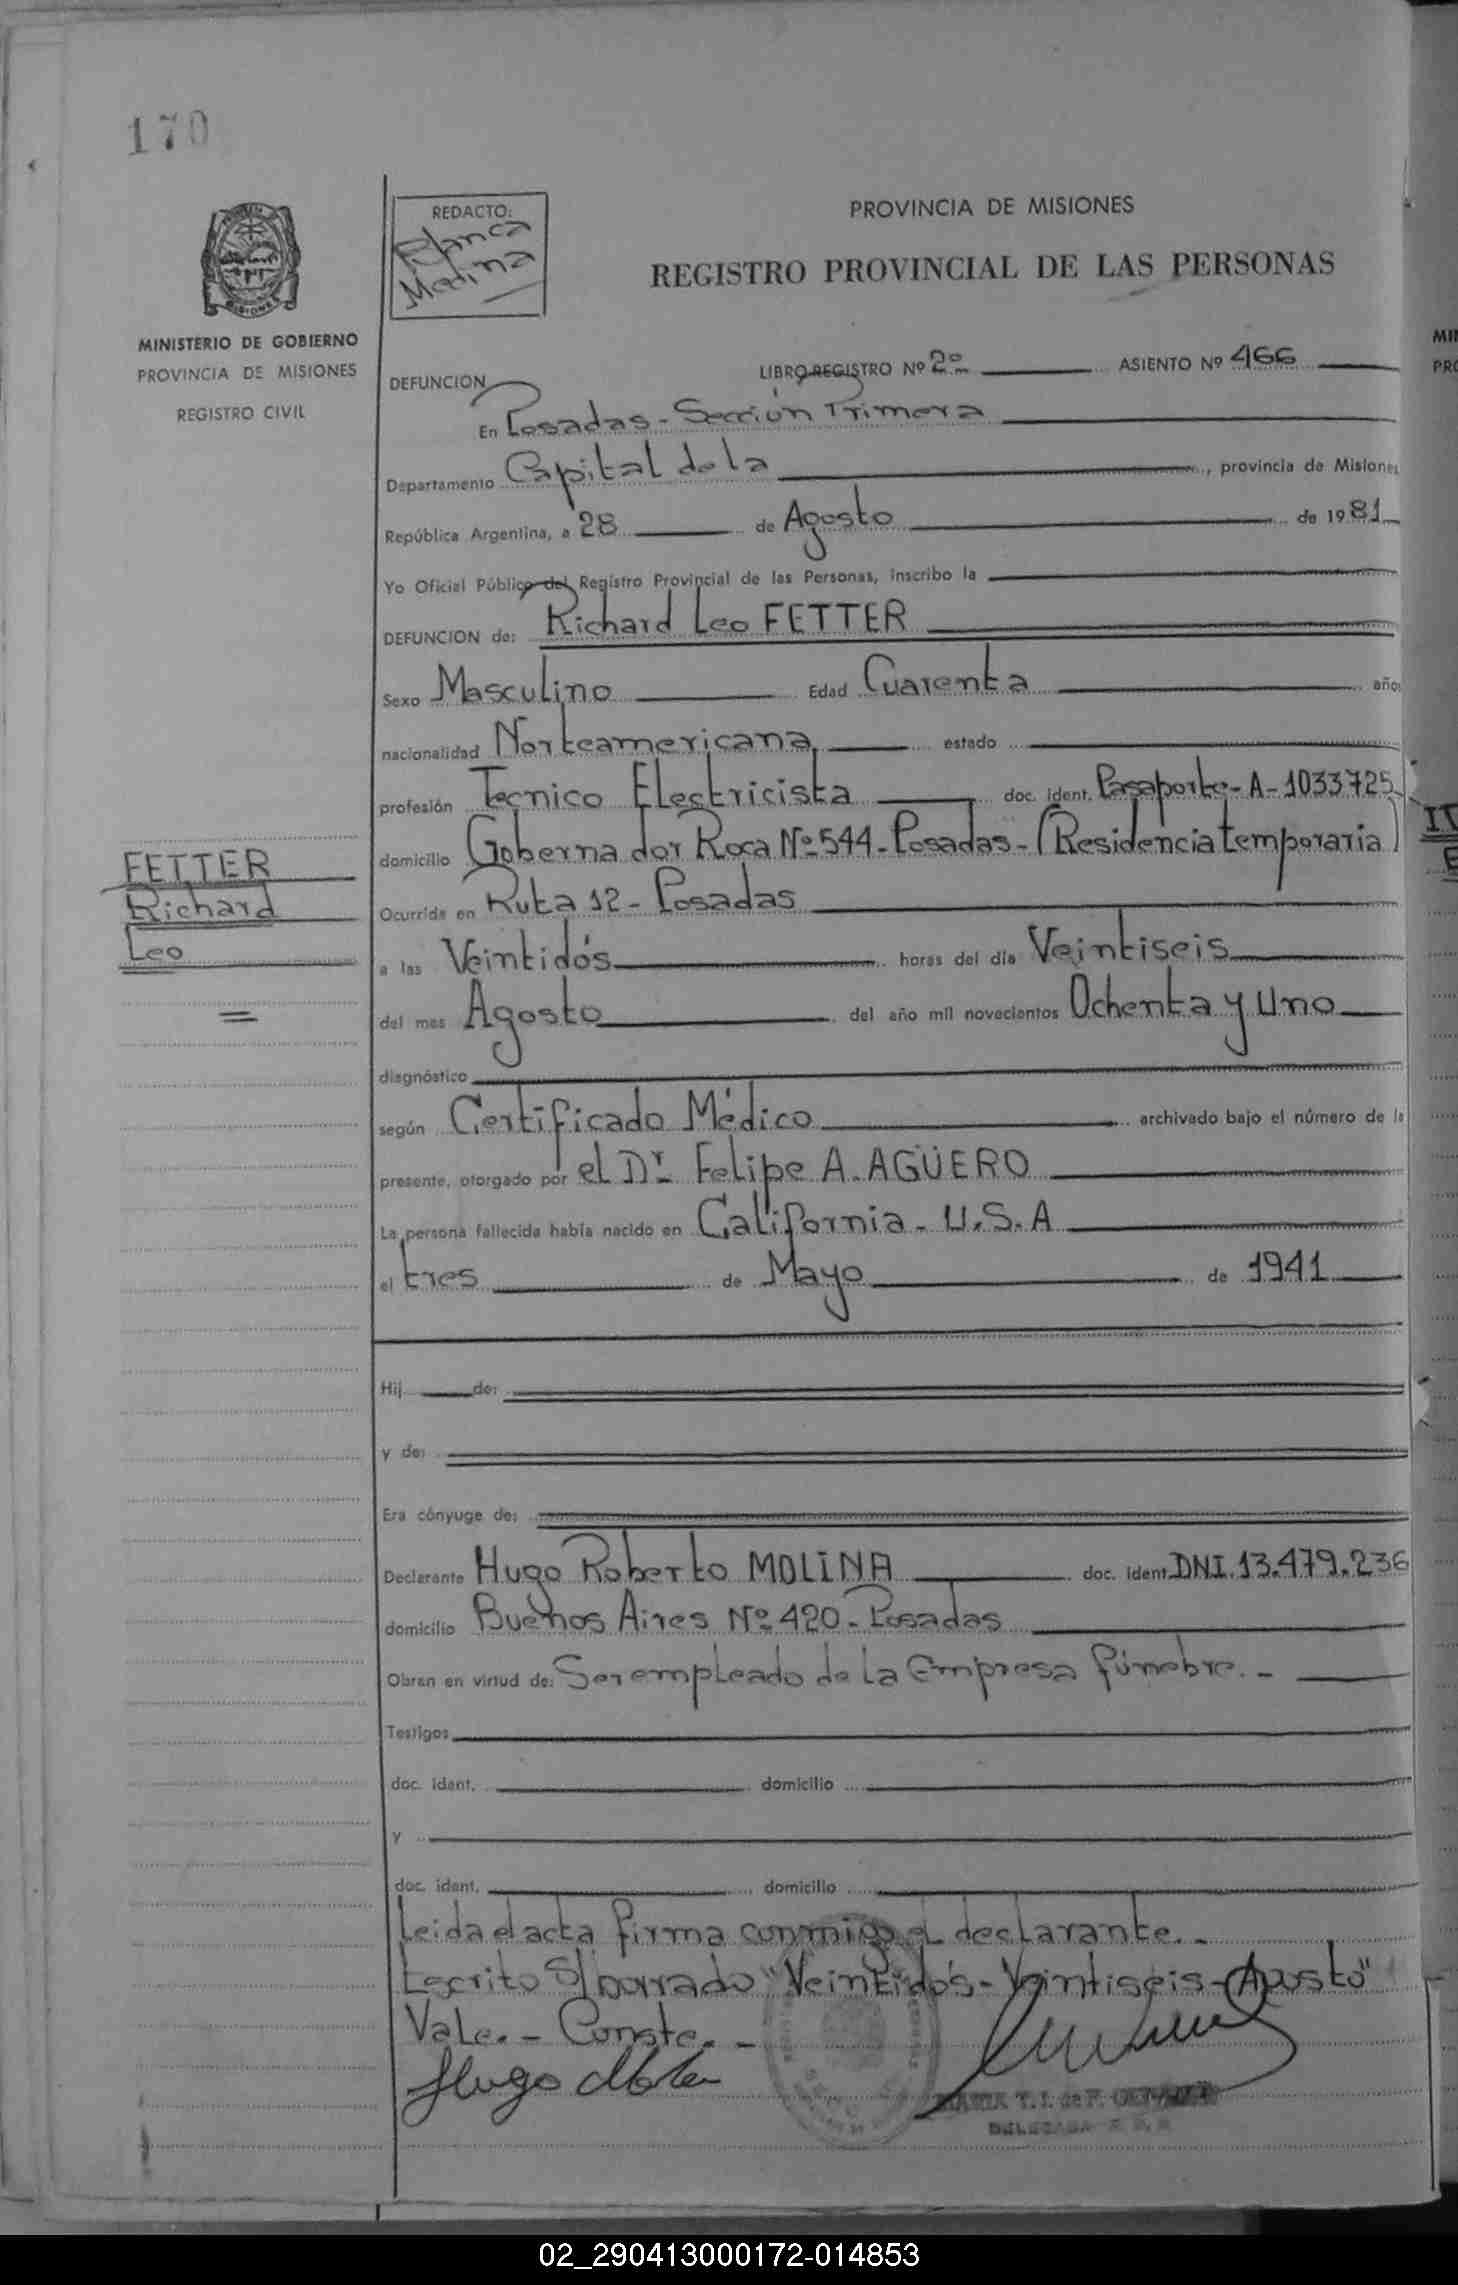 170
REDACTO:
Blanca
Medina
PROVINCIA DE MISIONES
REGISTRO PROVINCIAL DE LAS PERSONAS
MINISTERIO DE GOBIERNO
PROVINCIA DE MISIONES
REGISTRO CIVIL
DEFUNCION
LIBRO REGISTRO Nº 2º ASIENTO Nº 466
En Posadas - Sección Primera
Departamento Capital de la, provincia de Misiones
República Argentina, a 28 de Agosto de 1981
Yo Oficial Público del Registro Provincial de las Personas, inscribo la
DEFUNCION de: Richard Leo FETTER
Sexo Masculino Edad Cuarenta años
nacionalidad Norteamericana estado
profesión Tecnico Electricista doc. ident. Pasaporte - A - 1033725
domicilio Gobernador Roca Nº 544 - Posadas - (Residencia temporaria)
FETTER
Richard
Leo
Ocurrida en Ruta 12 - Posadas
a las Veintidós horas del día Veintiseis
del mes Agosto del año mil novecientos Ochenta y Uno
diagnóstico
según Certificado Médico archivado bajo el número de la
presente, otorgado por el Dr. Felipe A. AGÜERO
La persona fallecida había nacido en California - U.S.A
el tres de Mayo de 1941
Hij de:
y de:
Era cónyuge de:
Declarante Hugo Roberto MOLINA doc. ident. DNI. 13.479.236
domicilio Buenos Aires Nº 420 - Posadas
Obran en virtud de: Ser empleado de la Empresa fúnebre. -
Testigos
doc. ident. domicilio
y
doc. ident. domicilio
Leida el acta firma conmigo el declarante. -
Escrito S/borrado "Veintidós - Veintiseis - Agosto"
Vale. - Conste. -
Hugo Molina
MARIA T. I. de F.
DELEGADA
02_290413000172-014853